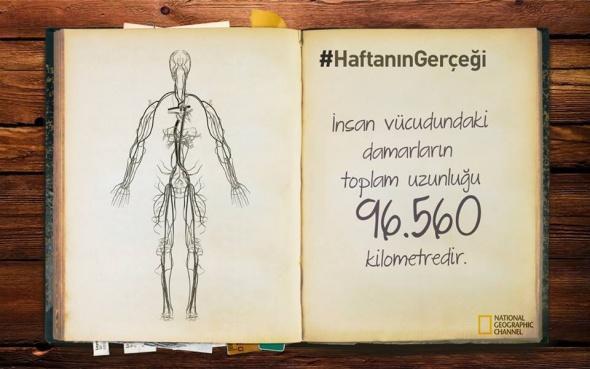 #HaftanınGerçeği
İnsan vücudundaki
damarların
toplam uzunluğu
96.560
kilometredir.
NATIONAL
GEOGRAPHIC
CHANNEL